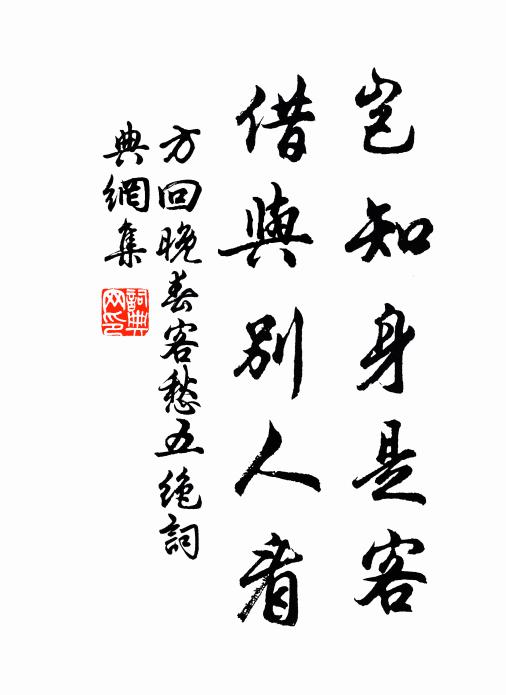 豈知身是客
借與別人看
方回晚春客愁五絶詞
典網集
詞典網印